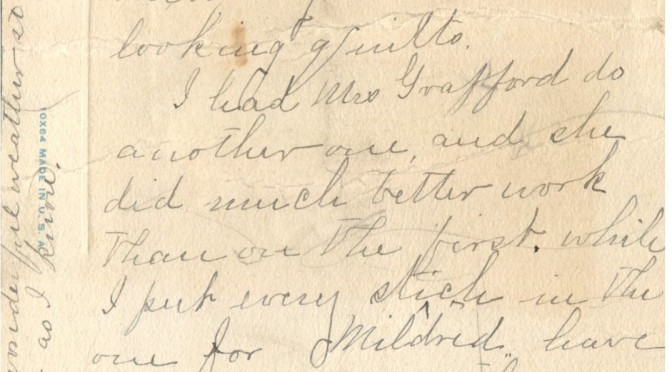 looking quilts.
I had Mrs Grafford do
another one, and she
did much better work
than on the first. while
I put every stich in the
one for Mildred. have
wonderful weather so
as I know.
MADE IN U.S.A.